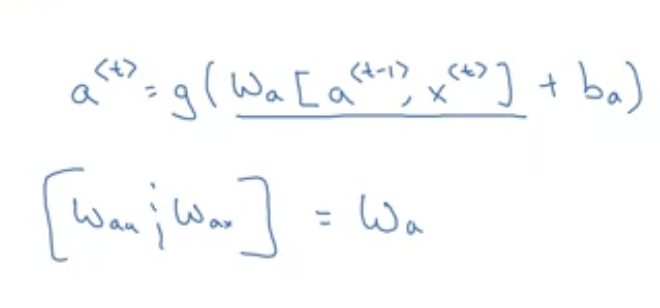 a^{<t>} = g(W_a [a^{<t-1>}, x^{<t>}] + b_a)
[W_{aa} ; W_{ax}] = W_a